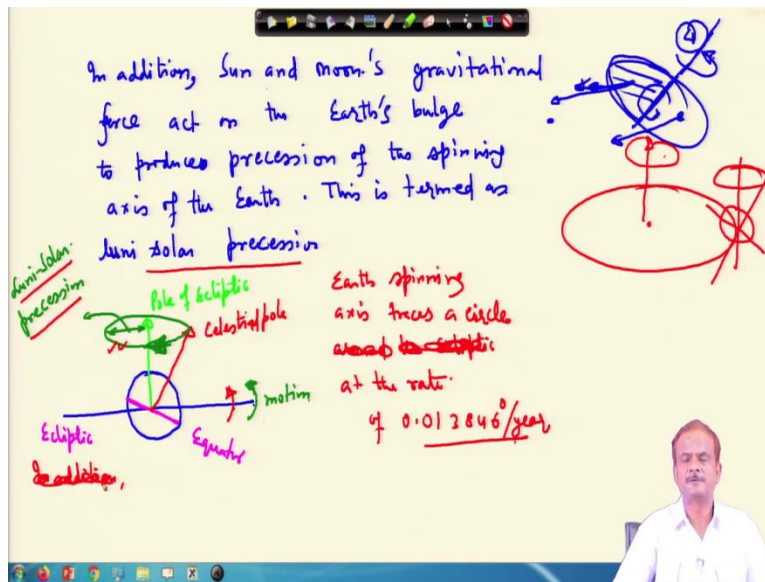 In addition, Sun and moon's gravitational
force act on the Earth's bulge
to produce precession of the spinning
axis of the Earth. This is termed as
luni solar precession
Luni-Solar
precession
Pole of Ecliptic
Celestial pole
motion
Ecliptic
Equator
In addition,
Earth spinning
axis traces a circle
at the rate
of 0.013846°/year